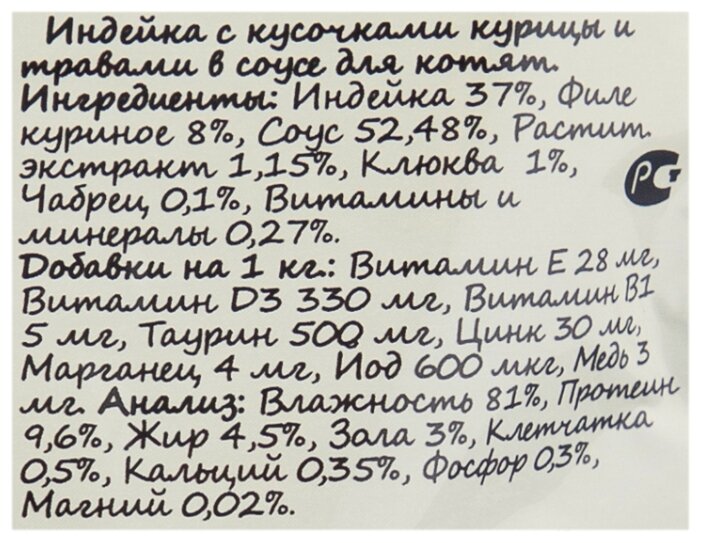 Индейка с кусочками курицы и
травами в соусе для котят.
Ингредиенты: Индейка 37%, Филе
куриное 8%, Соус 52,48%, Растит.
экстракт 1,15%, Клюква 1%,
Чабрец 0,1%, Витамины и
минералы 0,27%.
Добавки на 1 кг.: Витамин Е 28 мг,
Витамин D3 330 мг, Витамин В1
5 мг, Таурин 500 мг, Цинк 30 мг,
Марганец 4 мг, Йод 600 мкг, Медь 3
мг. Анализ: Влажность 81%, Протеин
9,6%, Жир 4,5%, Зола 3%, Клетчатка
0,5%, Кальций 0,35%, Фосфор 0,3%,
Магний 0,02%.